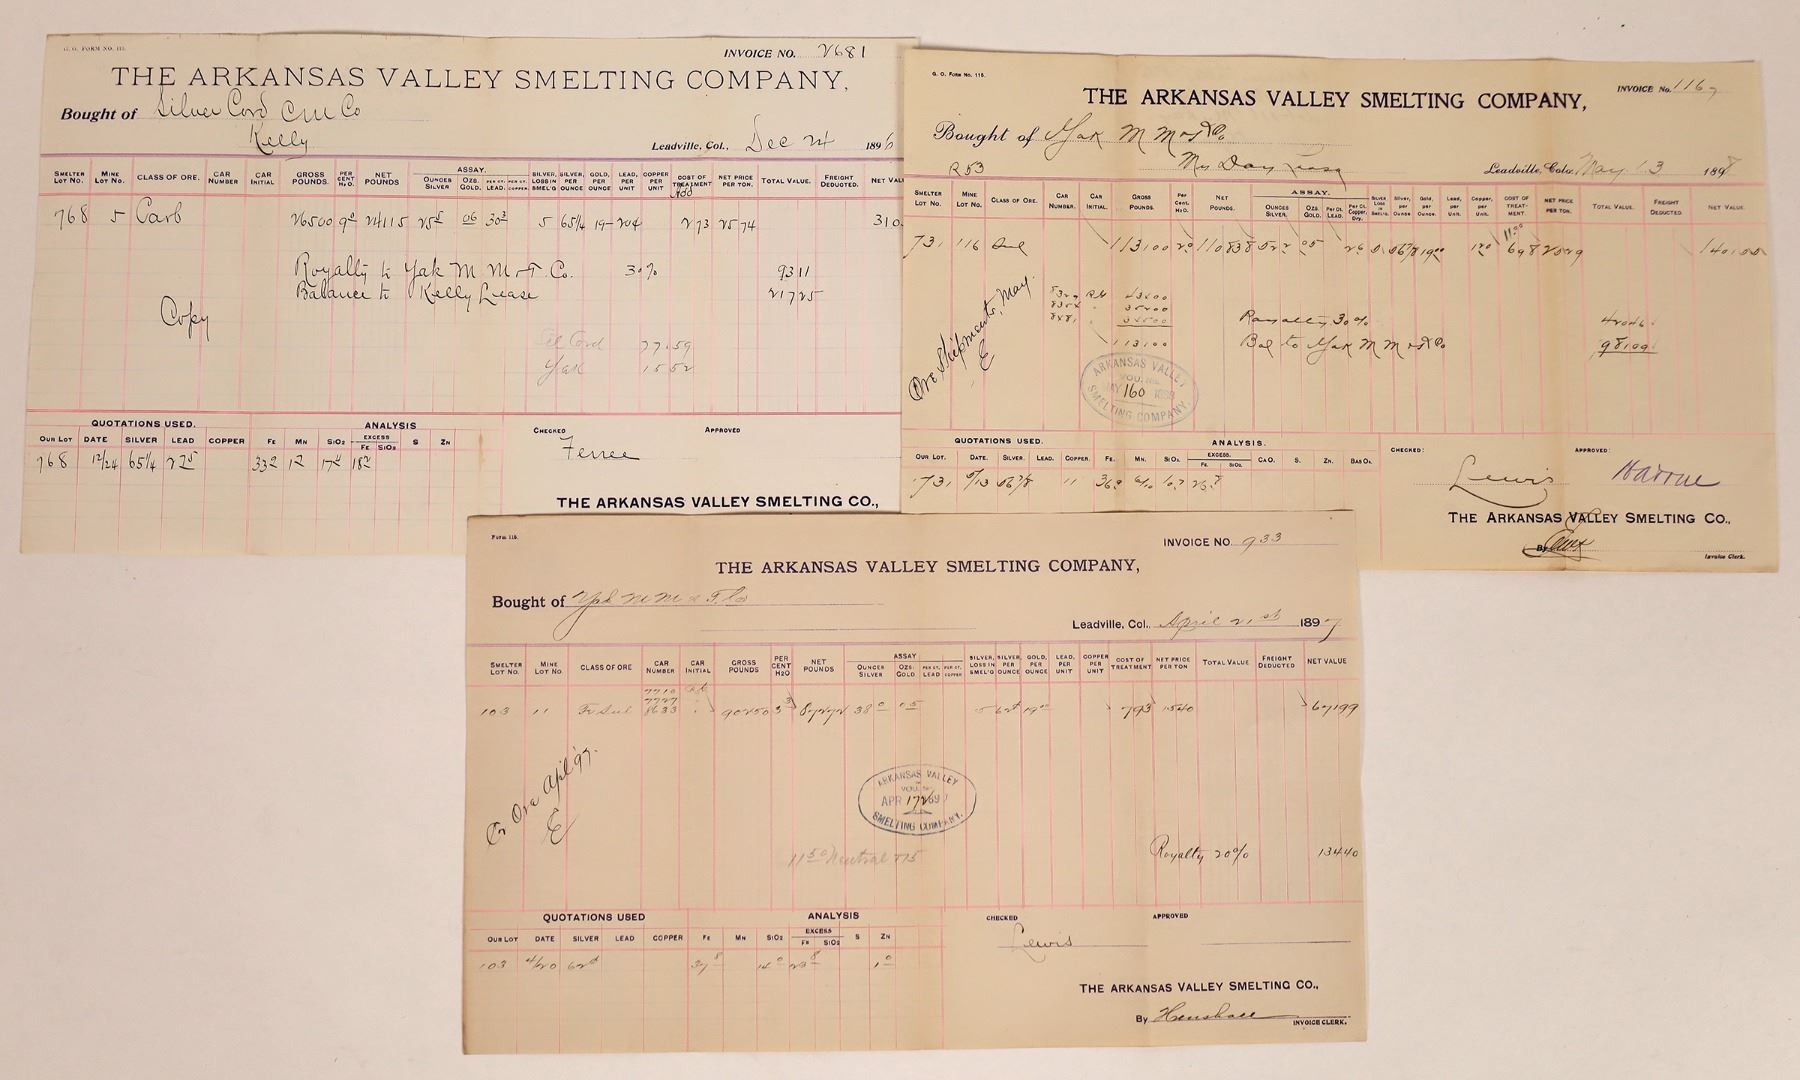 G. O. FORM NO. 115.
INVOICE NO. 2681
THE ARKANSAS VALLEY SMELTING COMPANY,
Bought of Silver Cord C M Co
Kelly
Leadville, Col., Dec 24 1896
SMELTER LOT NO. MINE LOT NO. CLASS OF ORE. CAR NUMBER CAR INITIAL GROSS POUNDS. PER CENT H2O. NET POUNDS ASSAY. OUNCES SILVER OZS. GOLD. PER CT. LEAD. PER CT. COPPER. SILVER, LOSS IN SMEL'G SILVER, PER OUNCE GOLD, PER OUNCE LEAD, PER UNIT COPPER PER UNIT COST OF TREATMENT NET PRICE PER TON. TOTAL VALUE. FREIGHT DEDUCTED. NET VAL
768 5 Carb 26500 9 24115 25 06 30 5 65 1/4 19- 204 273 2574 310
Royalty to Yak M M & T. Co. 30% 9311
Balance to Kelly Lease 21725
Copy
Sil Cord 77.59
Yak 1552
QUOTATIONS USED. ANALYSIS
OUR LOT DATE SILVER LEAD COPPER FE MN SIO2 EXCESS FE SIO2 S ZN
768 12/24 65 1/4 275 332 12 174 182
CHECKED Ferree APPROVED
THE ARKANSAS VALLEY SMELTING CO.,
G. O. FORM NO. 115.
INVOICE No. 1167
THE ARKANSAS VALLEY SMELTING COMPANY,
Bought of Yak M M & T Co
R53
Leadville, Colo. May 13 1898
SMELTER LOT NO. MINE LOT NO. CLASS OF ORE. CAR NUMBER. CAR INITIAL. GROSS POUNDS. Per Cent. H2O. NET POUNDS. ASSAY. OUNCES SILVER. OZS. GOLD. Per Ct. LEAD. Per Ct. Copper, Dry. SILVER LOSS IN SMEL'G. Silver, per Ounce Gold, per Ounce. Lead, per Unit. Copper, per Unit. COST OF TREAT- MENT. NET PRICE PER TON. TOTAL VALUE. FREIGHT DEDUCTED NET VALUE.
731 116 Sul 113100 20 110838 05 1900 120 698 2529 140155
Ore Shipments, May.
E
43200
35400
34500
113100
Royalty 30% 42046
Bal to Yak M M & T Co 98109
ARKANSAS VALLEY
VOU. NO.
MAY 160 1898
SMELTING COMPANY.
QUOTATIONS USED. ANALYSIS.
OUR LOT. DATE. SILVER. LEAD. COPPER. FE. MN. SIO2. EXCESS. FE. SIO2. CAO. S. ZN. BASO4.
731 5/13 56 7/8 11
CHECKED: Lewis APPROVED:
THE ARKANSAS VALLEY SMELTING CO.,
By
Invoice Clerk.
Form 115.
INVOICE NO 933
THE ARKANSAS VALLEY SMELTING COMPANY,
Bought of
Leadville, Col., April 21st 1897
SMELTER LOT NO. MINE LOT NO. CLASS OF ORE CAR NUMBER CAR INITIAL GROSS POUNDS PER CENT H2O NET POUNDS ASSAY OUNCES SILVER OZS. GOLD PER CT. LEAD PER CT. COPPER SILVER, LOSS IN SMEL'G SILVER, PER OUNCE GOLD, PER OUNCE LEAD, PER UNIT COPPER PER UNIT COST OF TREATMENT NET PRICE PER TON TOTAL VALUE FREIGHT DEDUCTED NET VALUE
7710
7727
103 11 Fe Sul 8633 90250 3 87272 38 05 5 19 793 1540 67199
Cr Ore Apl '97.
E
ARKANSAS VALLEY
VOU. NO.
APR 172 97
SMELTING COMPANY.
11 50 Neutral 815
Royalty 20% 13440
QUOTATIONS USED ANALYSIS
OUR LOT DATE SILVER LEAD COPPER FE MN SIO2 EXCESS FE SIO2 S ZN
103 4/20 378 140 238 10
CHECKED Lewis APPROVED
THE ARKANSAS VALLEY SMELTING CO.,
By Henshall INVOICE CLERK.